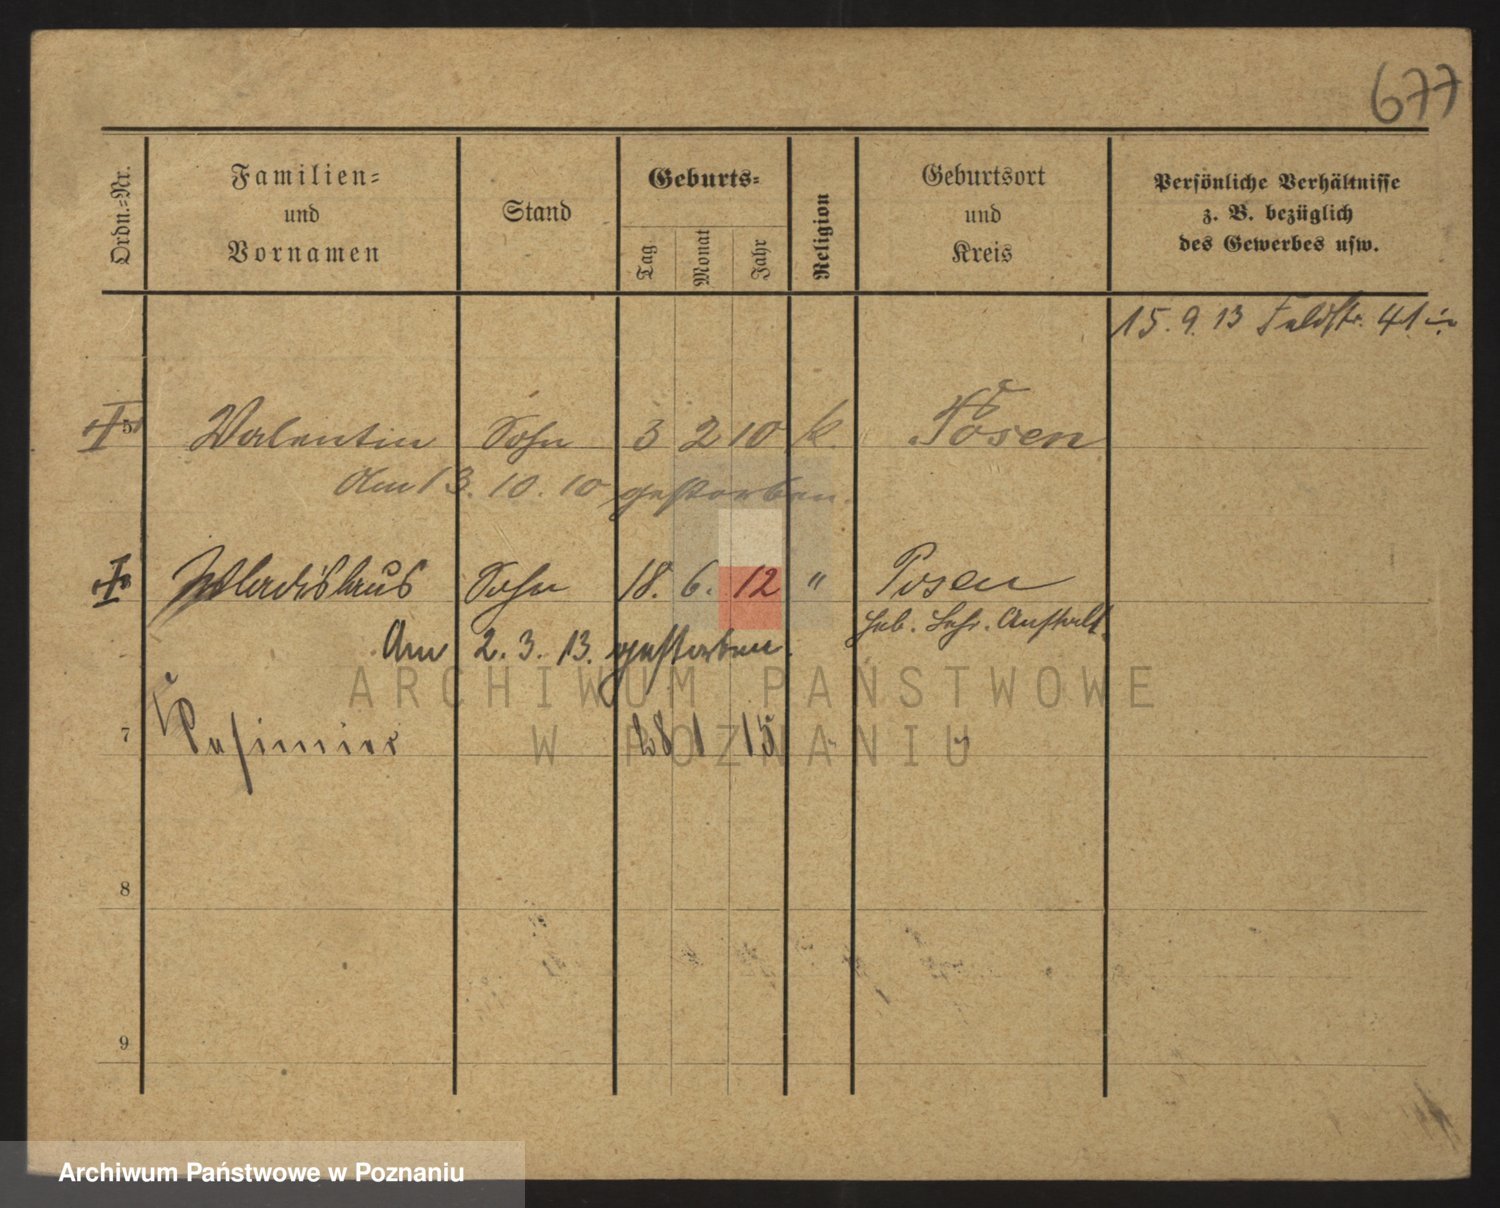 677
Ordn.-Nr.
Familien-
und
Vornamen
Stand
Geburts-
Tag
Monat
Jahr
Religion
Geburtsort
und
Kreis
Persönliche Verhältnisse
z. B. bezüglich
des Gewerbes usw.
15. 9. 13 Feldstr. 41
5 Valentin Sohn 3 2 10 k. Posen
Am 13. 10. 10 gestorben.
Wladislaus Sohn 18. 6. 12 " Posen
Heb. Lehr. Anstalt.
Am 2. 3. 13. gestorben.
ARCHIWUM PAŃSTWOWE
W POZNANIU
7 28 1 15
8
9
Archiwum Państwowe w Poznaniu